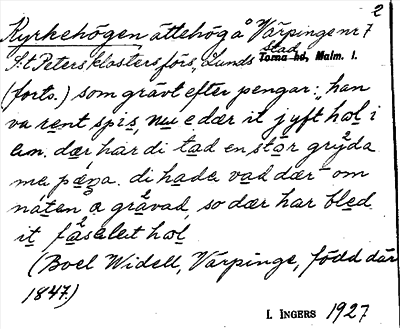 2
Kyrkehögen ättehög å Värpinge nr 7
S:t Peters klosters förs., Lunds stad Torna hd, Malm. l.
(forts.) som grävt efter pengar: „han
va rent spis, nu e dær it jyft hol i
en. dær har di tad en stor gryda
me pæna. di hade vad dær om
nåten å gråvad, so dær har bled
it fåselet hol
(Boel Widell, Värpinge, född där
1847.)
I. INGERS 1927